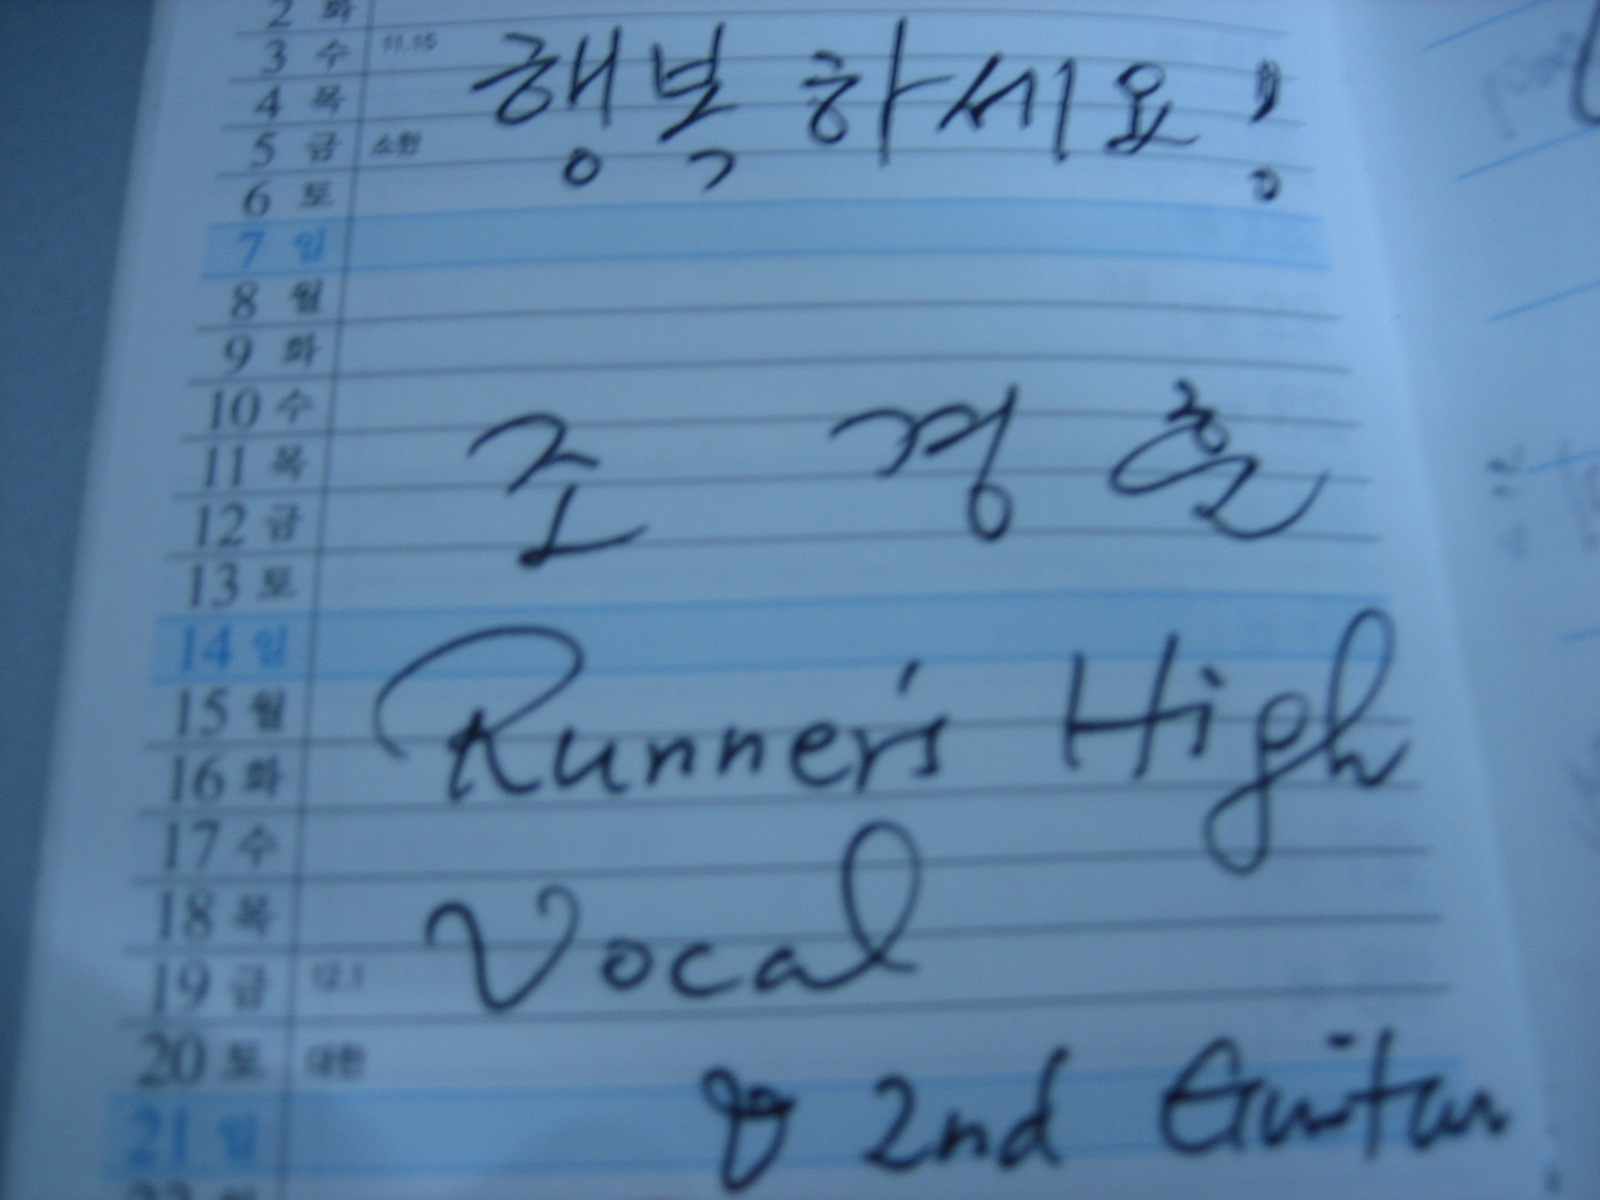 2 화
3 수 11.15
4 목
5 금 소한
6 토
7 일
8 월
9 화
10 수
11 목
12 금
13 토
14 일
15 월
16 화
17 수
18 목
19 금 12.1
20 토 대한
21 일
행복하세요!
조 경
Runner's High
Vocal
& 2nd Guitar